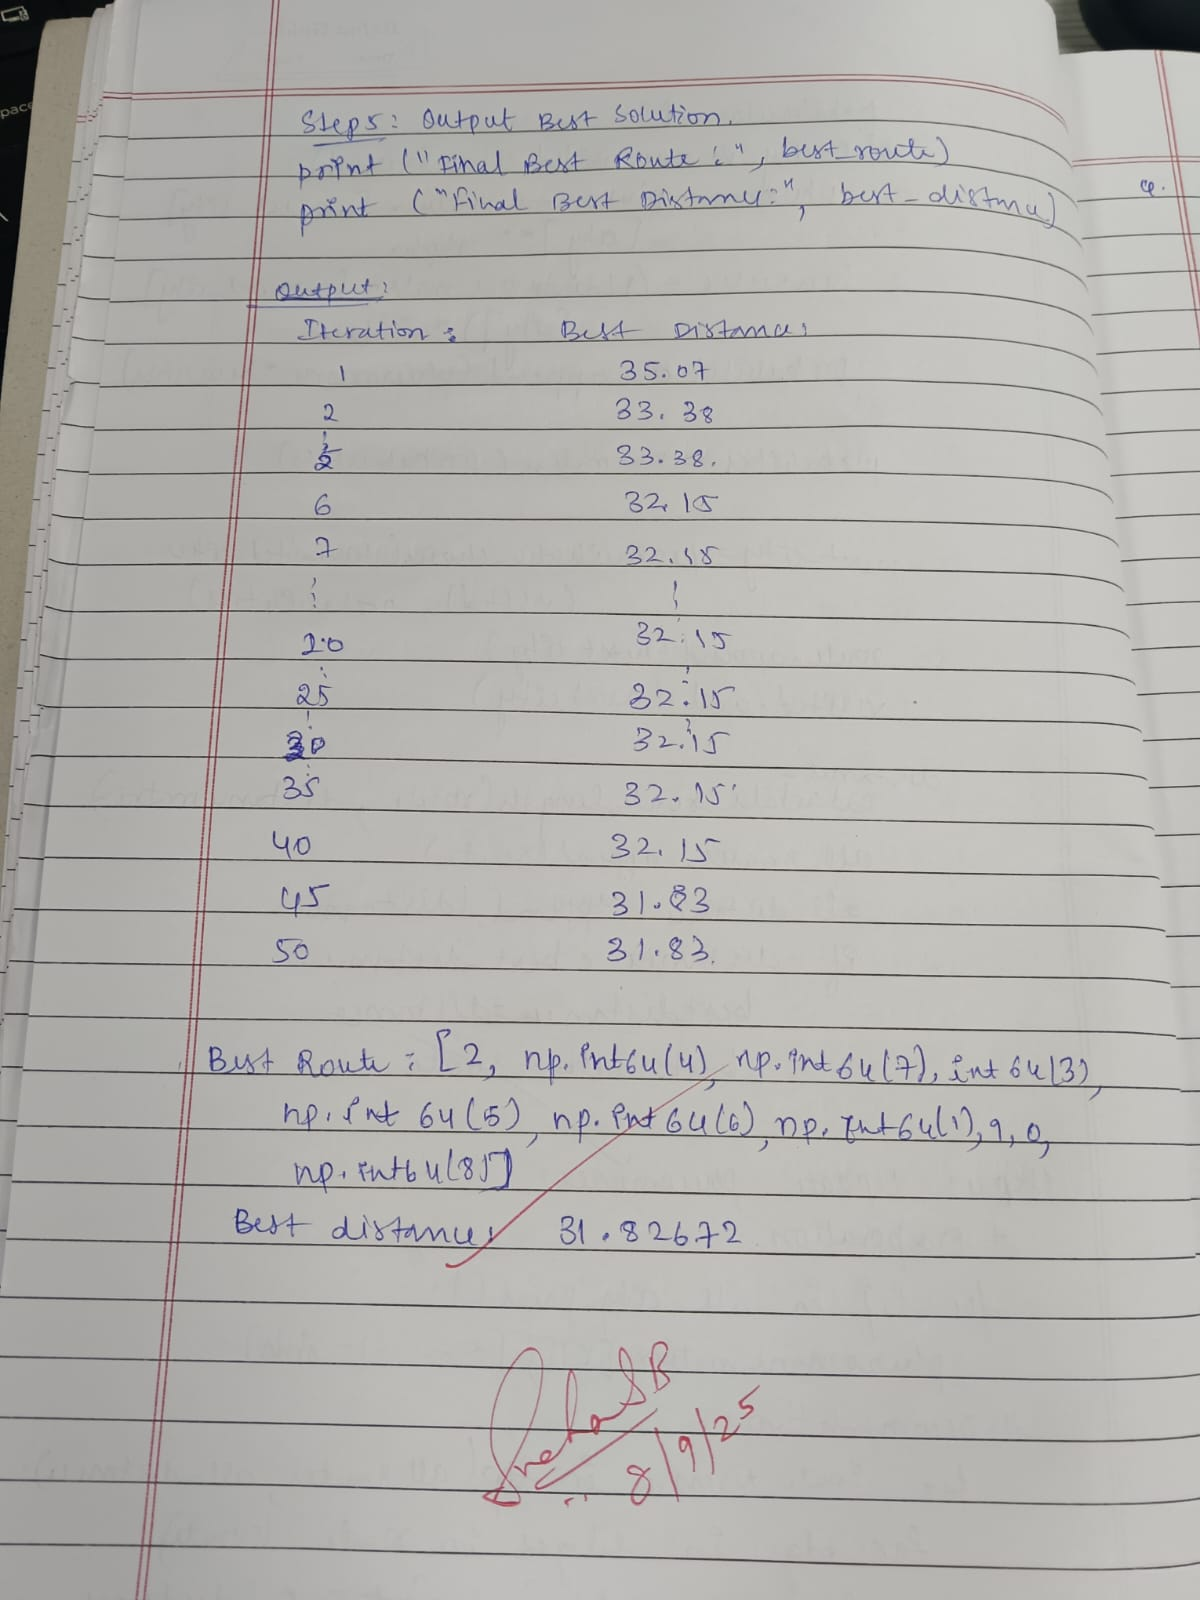 Step 5: Output Best Solution.
print ("Final Best Route:", best_route)
print ("Final Best Distance:", best_distance)
Output:
Iteration: Best Distance:
1 35.07
2 33.38
33.38.
6 32.15
7 32.15
20 32.15
25 32.15
30 32.15
35 32.15
40 32.15
45 31.83
50 31.83.
Best Route: [2, np.int64(4), np.int64(7), int64(3),
np.int64(5), np.int64(6), np.int64(1), 9, 0,
np.int64(8)]
Best distance: 31.82672
Sneha S B
8/9/25